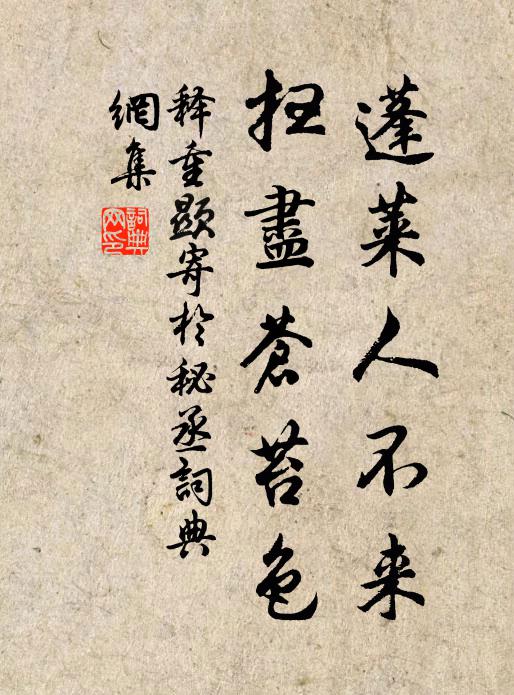 蓬莱人不来
扫盡蒼苔色
释重顯寄於秘丞詞典
網集
詞典
网印